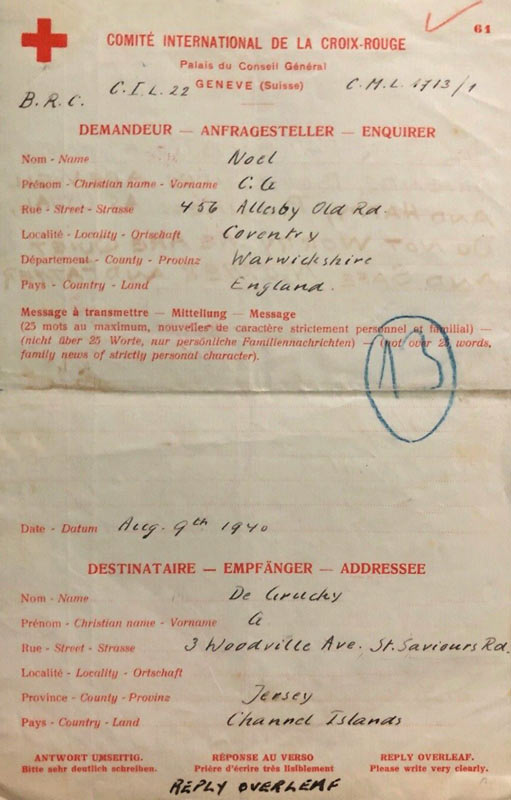 61
COMITÉ INTERNATIONAL DE LA CROIX-ROUGE
Palais du Conseil Général
GENEVE (Suisse)
B.R.C. C.I.L. 22 C.M.L. 1713/1
DEMANDEUR — ANFRAGESTELLER — ENQUIRER
Nom - Name Noel
Prénom - Christian name - Vorname C.G
Rue - Street - Strasse 456 Allesby Old Rd
Localité - Locality - Ortschaft Coventry
Département - County - Provinz Warwickshire
Pays - Country - Land England.
Message à transmettre — Mitteilung — Message
(25 mots au maximum, nouvelles de caractère strictement personnel et familial) —
(nicht über 25 Worte, nur persönliche Familiennachrichten) — (not over 25 words,
family news of strictly personal character).
13
Date - Datum Aug. 9th 1940
DESTINATAIRE — EMPFÄNGER — ADDRESSEE
Nom - Name De Gruchy
Prénom - Christian name - Vorname G
Rue - Street - Strasse 3 Woodville Ave. St. Saviours Rd.
Localité - Locality - Ortschaft
Province - County - Provinz Jersey
Pays - Country - Land Channel Islands
ANTWORT UMSEITIG. RÉPONSE AU VERSO REPLY OVERLEAF.
Bitte sehr deutlich schreiben. Prière d'écrire très lisiblement Please write very clearly.
REPLY OVERLEAF